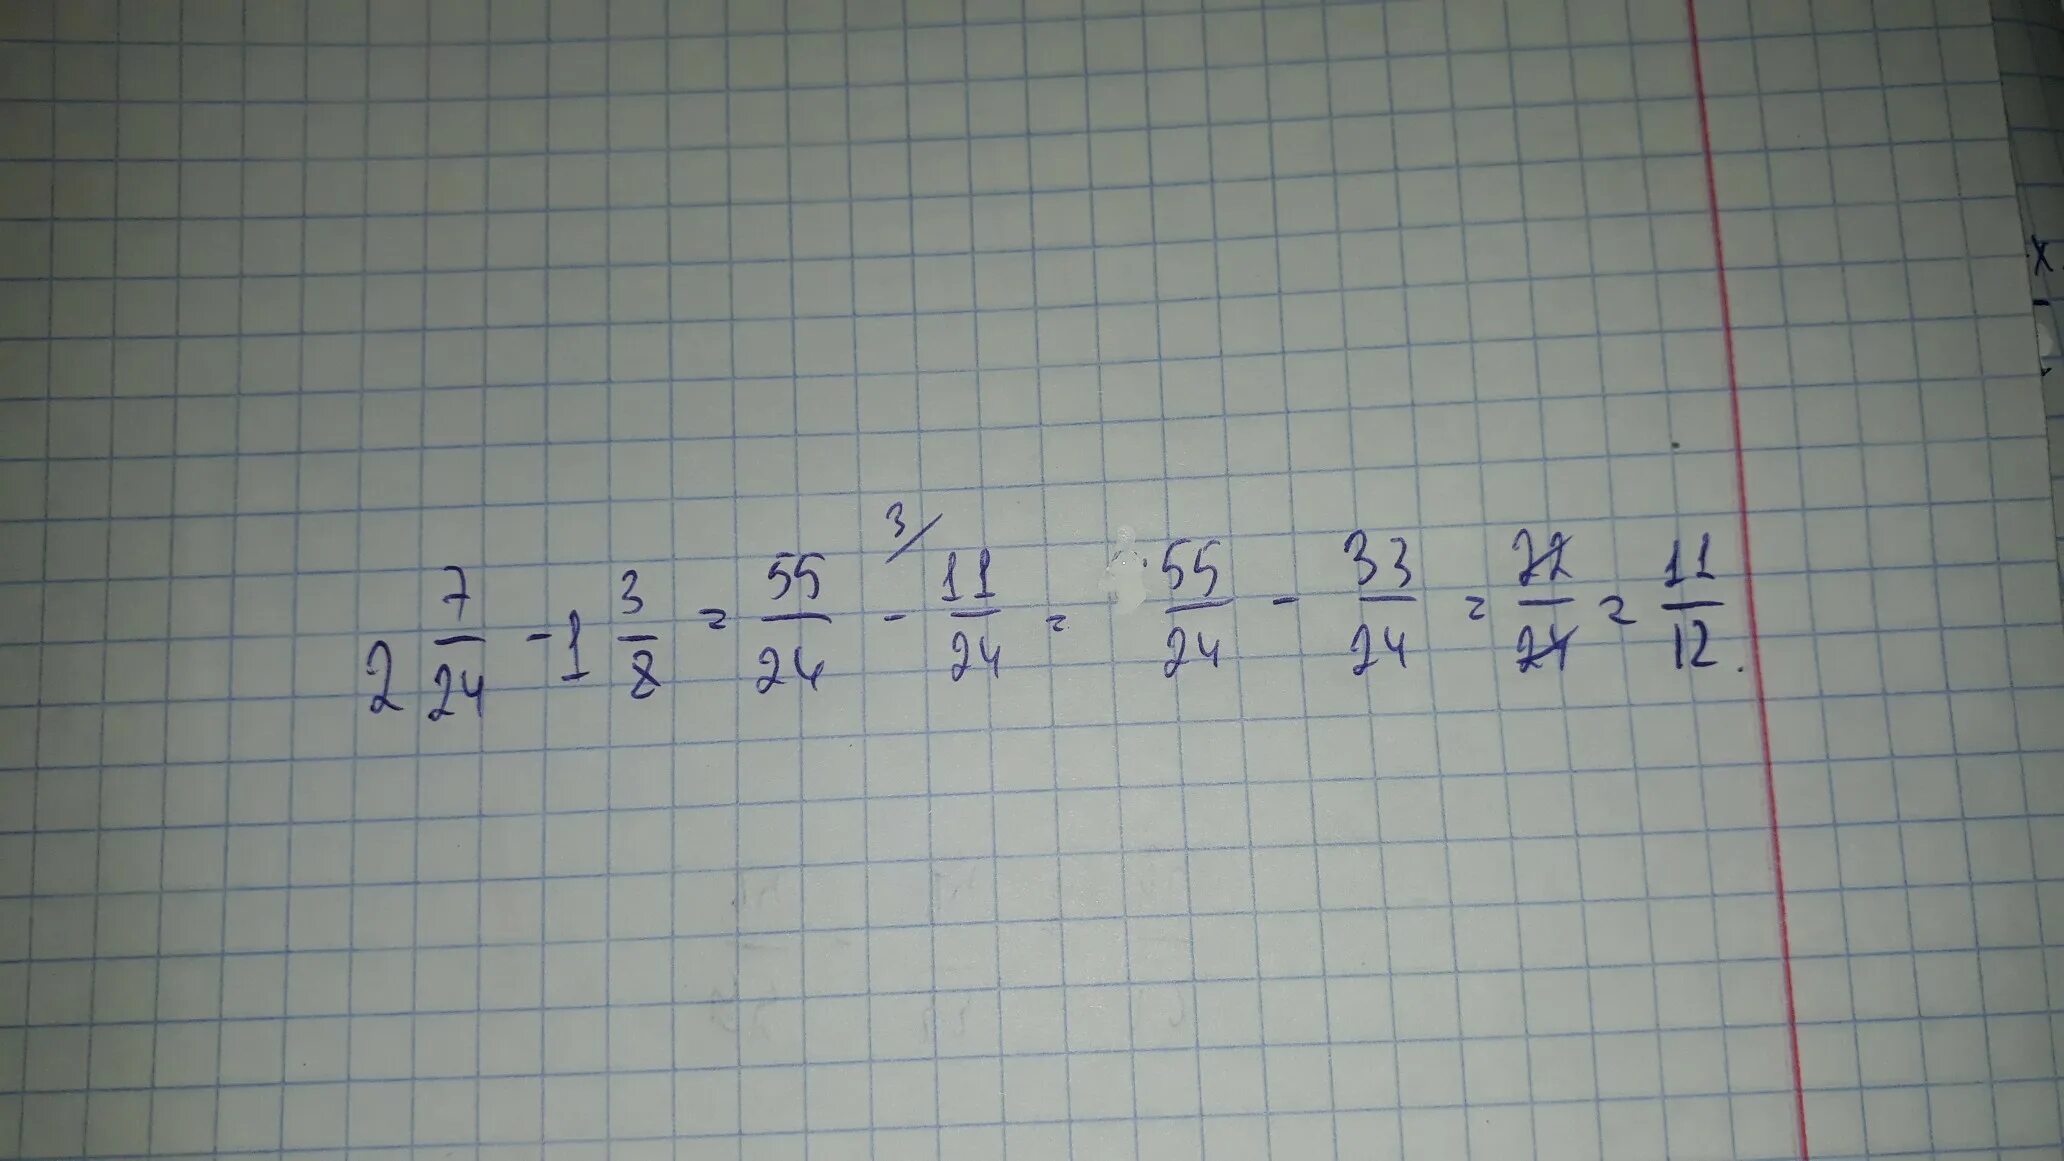 2 7/24 - 1 3/8 = 55/24 - 3/ 11/24 = 55/24 - 33/24 = 22/24 = 11/12.
x